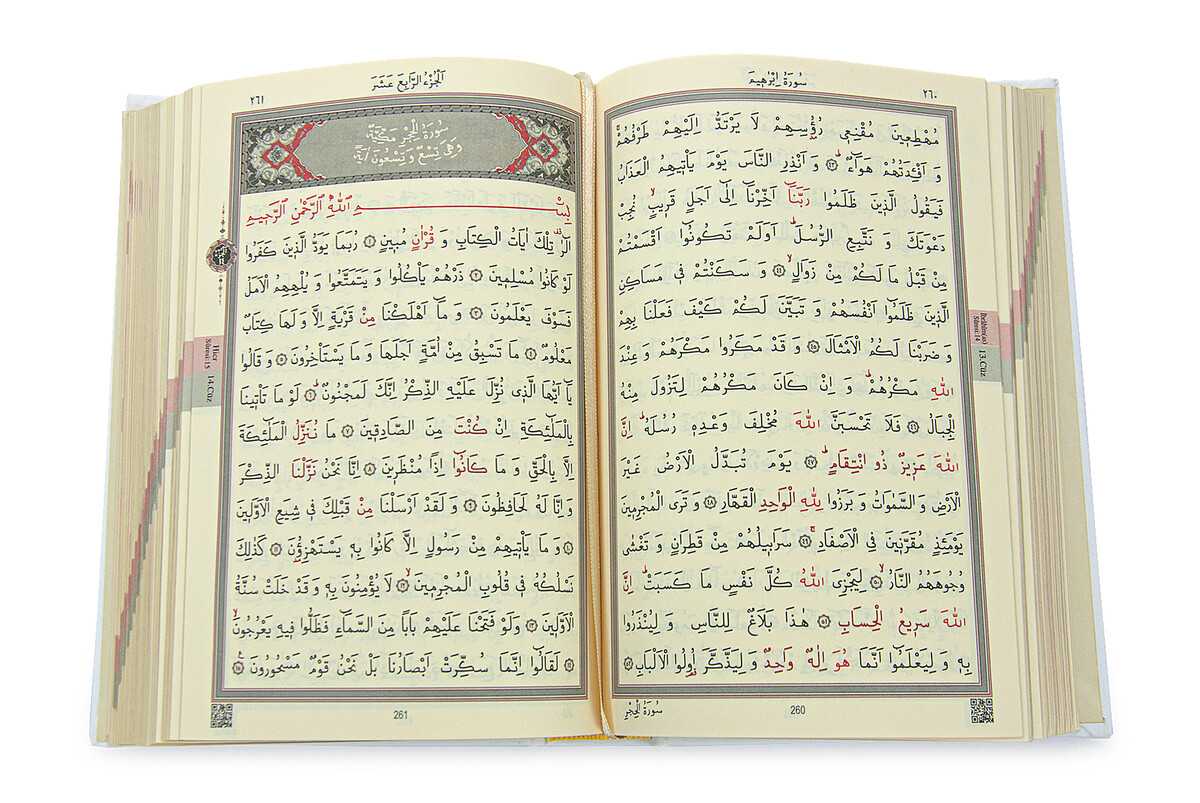 سُورَةُ اِبْرٰهِيمَ
٢٦٠
مُهْطِعِينَ مُقْنِعِي رُؤُسِهِمْ لَا يَرْتَدُّ اِلَيْهِمْ طَرْفُهُمْۚ
وَ اَفْـِٔدَتُهُمْ هَوَٓاءٌۜ ﴿٤٣﴾ وَ اَنْذِرِ النَّاسَ يَوْمَ يَأْتِيهِمُ الْعَذَابُ
فَيَقُولُ الَّذِينَ ظَلَمُوا رَبَّنَٓا اَخِّرْنَٓا اِلٰٓى اَجَلٍ قَرِيبٍۙ نُجِبْ
دَعْوَتَكَ وَ نَتَّبِعِ الرُّسُلَۜ اَوَلَمْ تَكُونُٓوا اَقْسَمْتُمْ
مِنْ قَبْلُ مَا لَكُمْ مِنْ زَوَالٍۙ ﴿٤٤﴾ وَ سَكَنْتُمْ فِي مَسَاكِنِ
الَّذِينَ ظَلَمُٓوا اَنْفُسَهُمْ وَ تَبَيَّنَ لَكُمْ كَيْفَ فَعَلْنَا بِهِمْ
وَ ضَرَبْنَا لَكُمُ الْاَمْثَالَ ﴿٤٥﴾ وَ قَدْ مَكَرُوا مَكْرَهُمْ وَ عِنْدَ
اللّٰهِ مَكْرُهُمْۜ وَ اِنْ كَانَ مَكْرُهُمْ لِتَزُولَ مِنْهُ
الْجِبَالُ ﴿٤٦﴾ فَلَا تَحْسَبَنَّ اللّٰهَ مُخْلِفَ وَعْدِهٖ رُسُلَهُۜ اِنَّ
اللّٰهَ عَزِيزٌ ذُو انْتِقَامٍۜ ﴿٤٧﴾ يَوْمَ تُبَدَّلُ الْاَرْضُ غَيْرَ
الْاَرْضِ وَ السَّمٰوَاتُ وَ بَرَزُوا لِلّٰهِ الْوَاحِدِ الْقَهَّارِ ﴿٤٨﴾ وَ تَرَى الْمُجْرِمِينَ
يَوْمَئِذٍ مُقَرَّنِينَ فِي الْاَصْفَادِۚ ﴿٤٩﴾ سَرَابِيلُهُمْ مِنْ قَطِرَانٍ وَ تَغْشٰى
وُجُوهَهُمُ النَّارُۙ ﴿٥٠﴾ لِيَجْزِيَ اللّٰهُ كُلَّ نَفْسٍ مَا كَسَبَتْۜ اِنَّ
اللّٰهَ سَرِيعُ الْحِسَابِ ﴿٥١﴾ هٰذَا بَلَاغٌ لِلنَّاسِ وَ لِيُنْذَرُوا
بِهٖ وَ لِيَعْلَمُٓوا اَنَّمَا هُوَ اِلٰهٌ وَاحِدٌ وَ لِيَذَّكَّرَ اُولُوا الْاَلْبَابِ ﴿٥٢﴾
سُورَةُ الْحِجْرِ
260
İbrâhîm(as)
Sûresi:14
13.Cüz
اَلْجُزْءُ الرَّابِعَ عَشَرَ
٢٦١
سُورَةُ الْحِجْرِ مَكِّيَّةٌ
وَهِيَ تِسْعٌ وَ تِسْعُونَ اٰيَةً
بِسْمِ اللّٰهِ الرَّحْمٰنِ الرَّحِيمِ
الٓرٰ۠ تِلْكَ اٰيَاتُ الْكِتَابِ وَ قُرْاٰنٍ مُبِينٍ ﴿١﴾ رُبَمَا يَوَدُّ الَّذِينَ كَفَرُوا
لَوْ كَانُوا مُسْلِمِينَ ﴿٢﴾ ذَرْهُمْ يَأْكُلُوا وَ يَتَمَتَّعُوا وَ يُلْهِهِمُ الْاَمَلُ
فَسَوْفَ يَعْلَمُونَ ﴿٣﴾ وَ مَٓا اَهْلَكْنَا مِنْ قَرْيَةٍ اِلَّا وَ لَهَا كِتَابٌ
مَعْلُومٌ ﴿٤﴾ مَا تَسْبِقُ مِنْ اُمَّةٍ اَجَلَهَا وَ مَا يَسْتَأْخِرُونَ ﴿٥﴾ وَ قَالُوا
يَٓا اَيُّهَا الَّذِي نُزِّلَ عَلَيْهِ الذِّكْرُ اِنَّكَ لَمَجْنُونٌۜ ﴿٦﴾ لَوْ مَا تَأْتِينَا
بِالْمَلٰٓئِكَةِ اِنْ كُنْتَ مِنَ الصَّادِقِينَ ﴿٧﴾ مَا نُنَزِّلُ الْمَلٰٓئِكَةَ
اِلَّا بِالْحَقِّ وَ مَا كَانُٓوا اِذًا مُنْظَرِينَ ﴿٨﴾ اِنَّا نَحْنُ نَزَّلْنَا الذِّكْرَ
وَ اِنَّا لَهُ لَحَافِظُونَ ﴿٩﴾ وَ لَقَدْ اَرْسَلْنَا مِنْ قَبْلِكَ فِي شِيَعِ الْاَوَّلِينَ
﴿١٠﴾ وَ مَا يَأْتِيهِمْ مِنْ رَسُولٍ اِلَّا كَانُوا بِهٖ يَسْتَهْزِؤُ۫نَ ﴿١١﴾ كَذٰلِكَ
نَسْلُكُهُ فِي قُلُوبِ الْمُجْرِمِينَۙ ﴿١٢﴾ لَا يُؤْمِنُونَ بِهٖ وَ قَدْ خَلَتْ سُنَّةُ
الْاَوَّلِينَ ﴿١٣﴾ وَلَوْ فَتَحْنَا عَلَيْهِمْ بَابًا مِنَ السَّمَٓاءِ فَظَلُّوا فِيهِ يَعْرُجُونَۙ
﴿١٤﴾ لَقَالُٓوا اِنَّمَا سُكِّرَتْ اَبْصَارُنَا بَلْ نَحْنُ قَوْمٌ مَسْحُورُونَ۟ ﴿١٥﴾
261
Hicr
Sûresi:15
14.Cüz